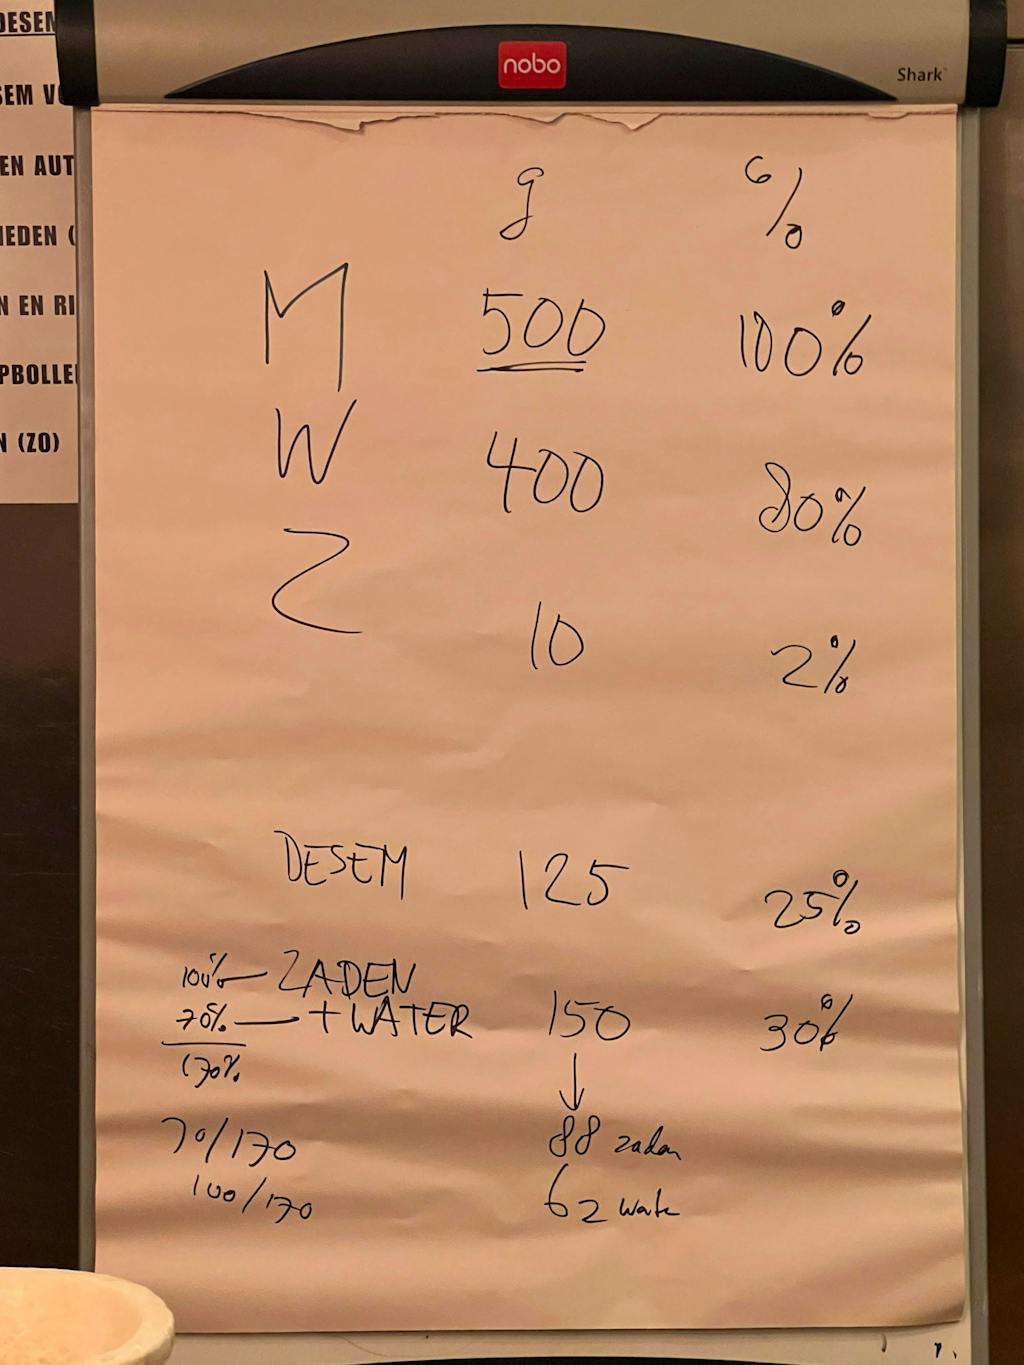 nobo
Shark
DESEM
SEM VO
EN AUT
IEDEN (
N EN RI
PBOLLE
N (ZO)
g %
M 500 100%
W 400 80%
Z 10 2%
DESEM 125 25%
100% — ZADEN
70% — + WATER 150 30%
170%
↓
70/170 88 zaden
100/170 62 water